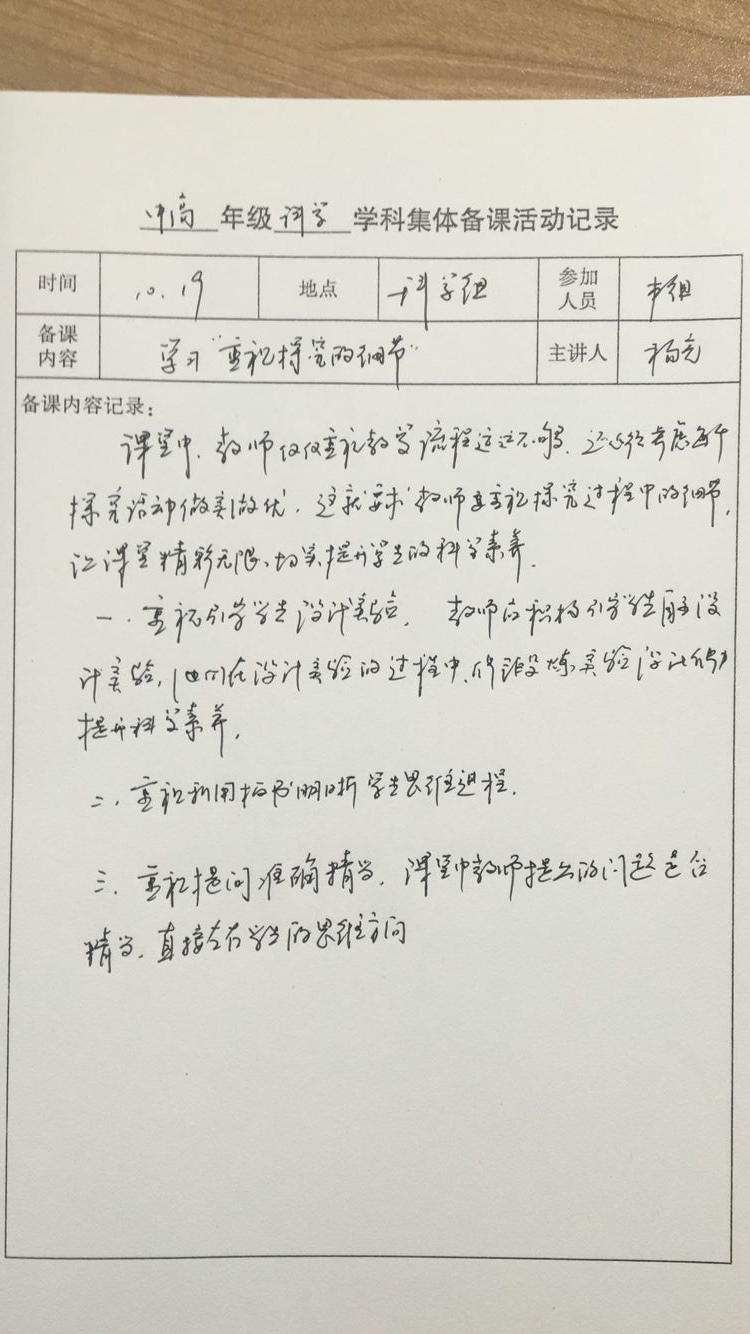 中高 年级 科学 学科集体备课活动记录
时间 10.19 地点 科学组 参加人员 本组
备课内容 学习"重视探究的细节" 主讲人 杨亮
备课内容记录：
课堂中，教师仅仅重视教学流程远远不够，还必须考虑每个
探究活动做实做优，这就要求教师要重视探究过程中的细节，
让课堂精彩无限、切实提升学生的科学素养。
一、重视引导学生设计实验， 教师应积极引导学生自主设
计实验，他们在设计实验的过程中，锻炼实验设计能力
提升科学素养。
二、重视利用板书明晰学生思维进程。
三、重视提问准确精当，课堂中教师提出的问题是否
精当，直接左右学生的思维方向